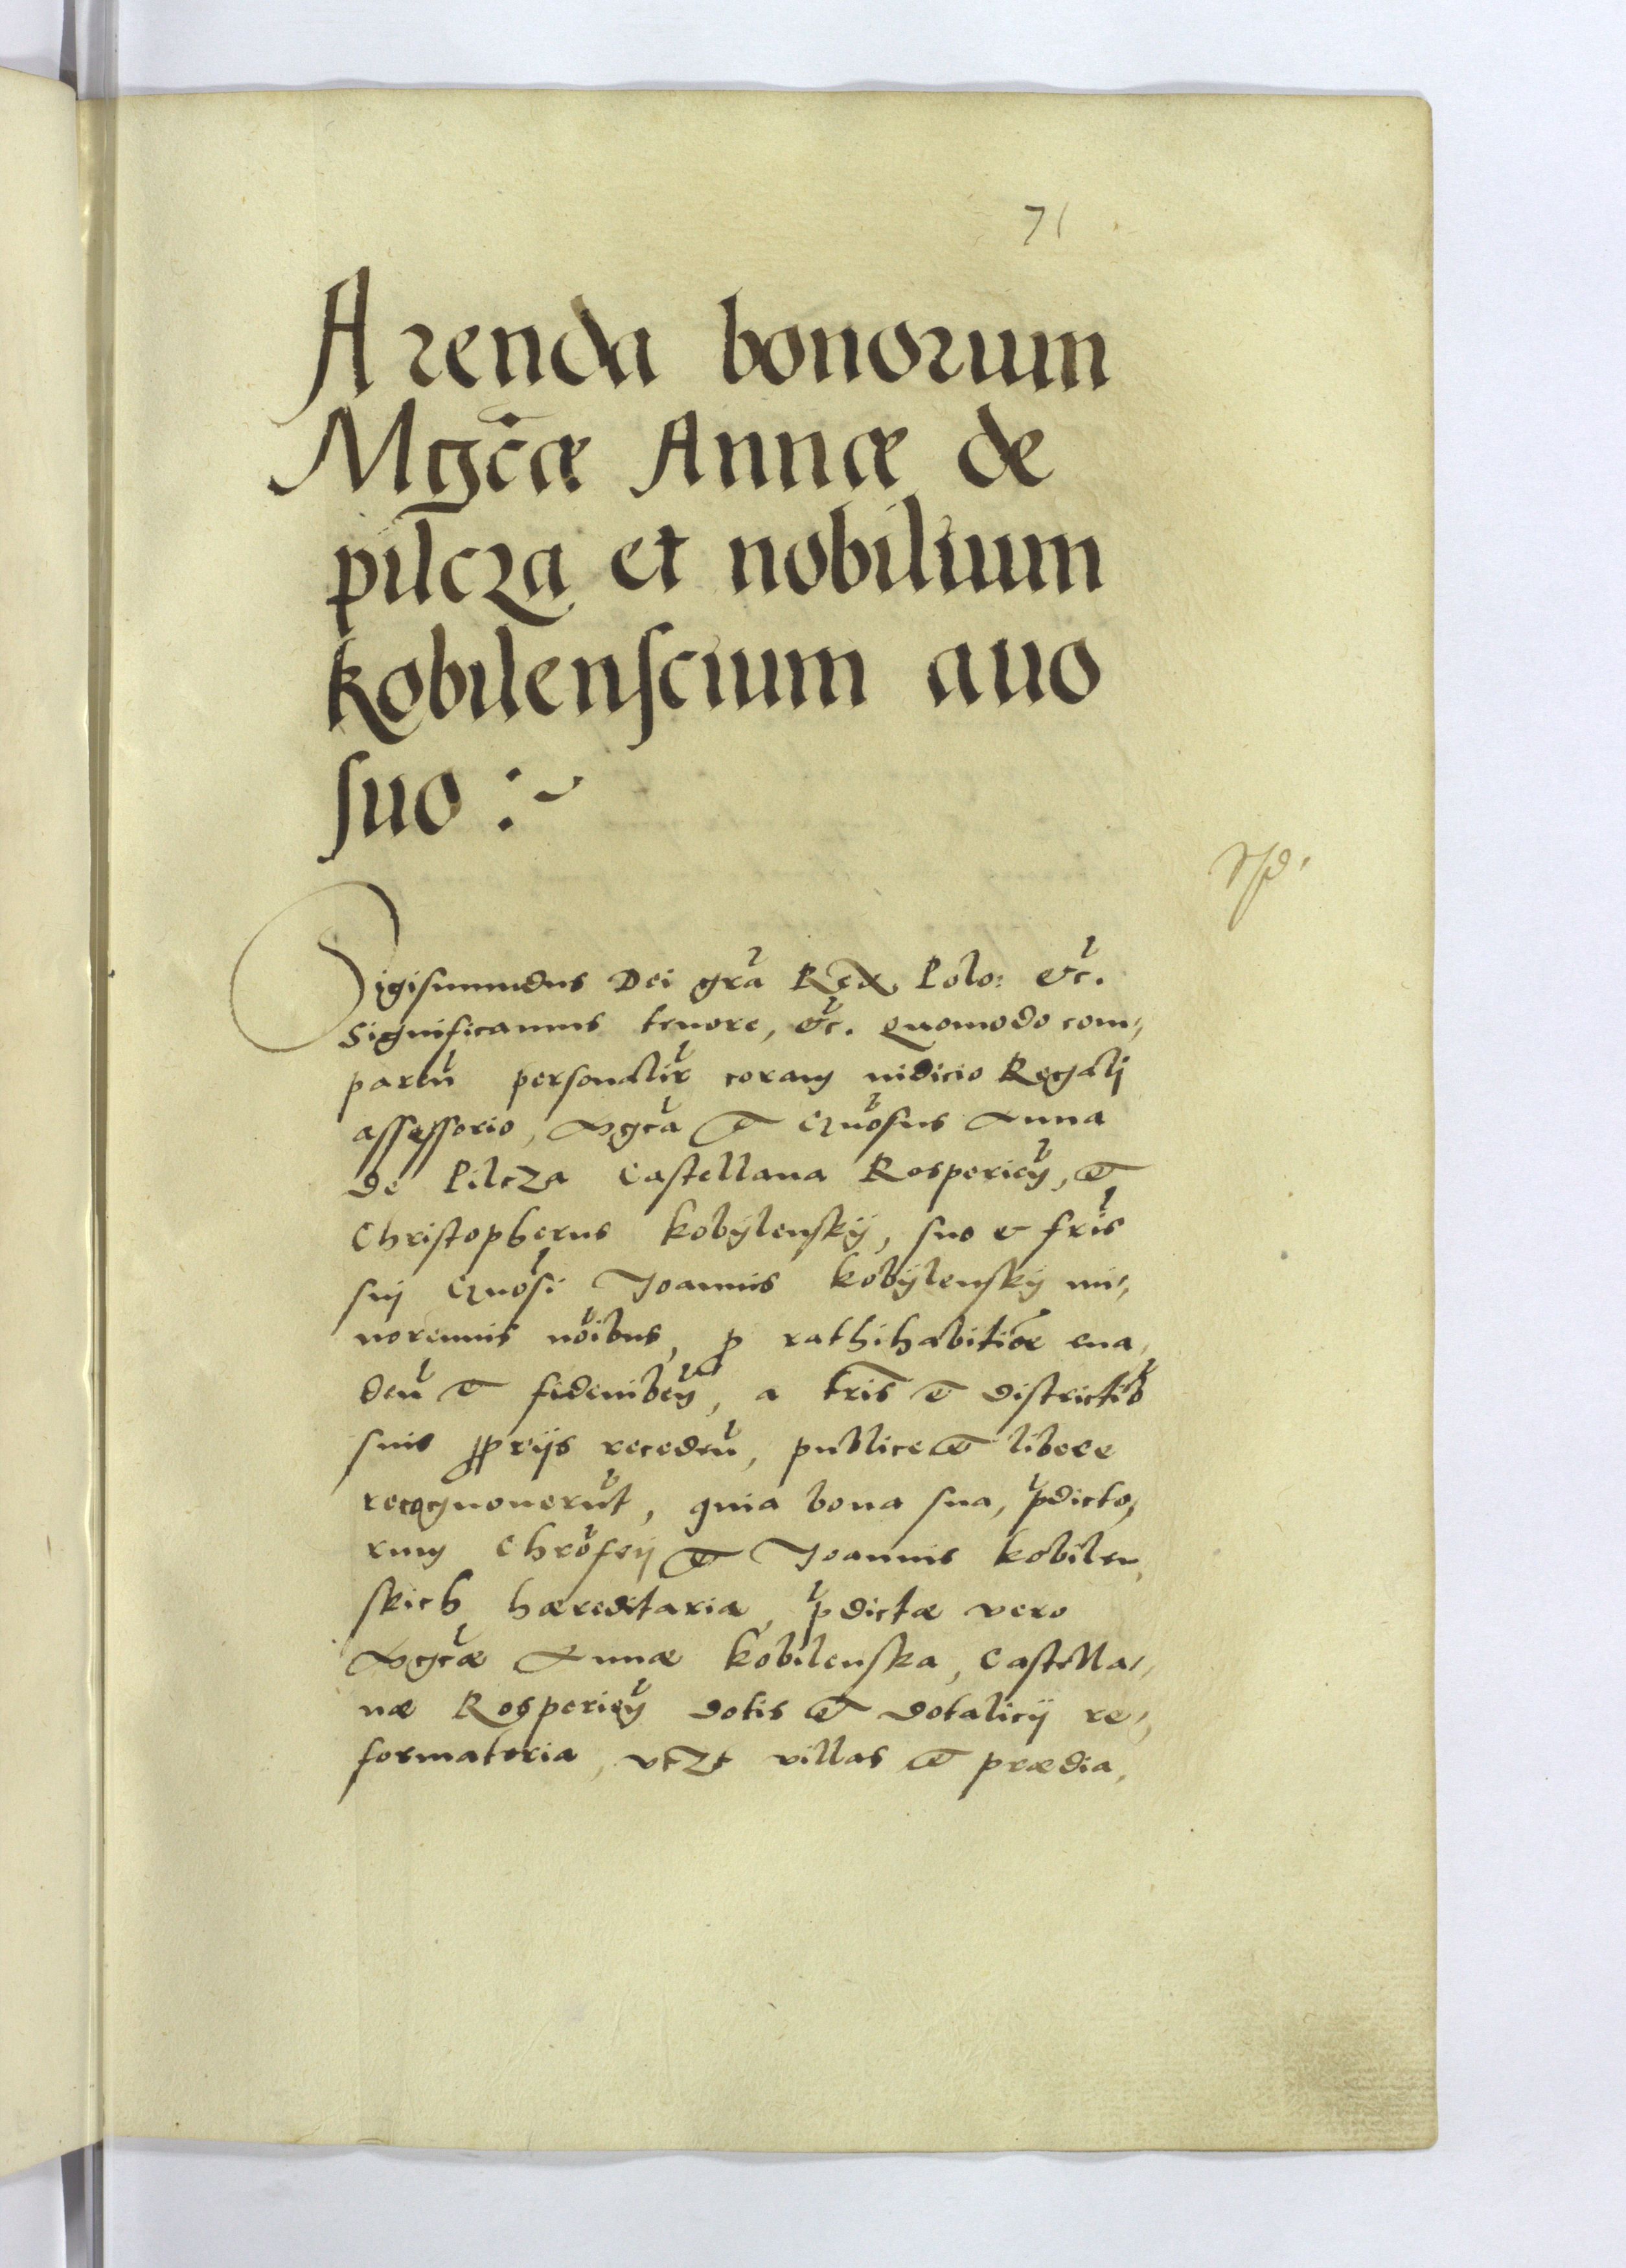 71
Arenda bonorum
Mgcæ Annæ de
pilcza et nobilium
kobilenscium auo
suo :~
Sigismundus Dei gra Rex Polo: etc.
Significamus tenore, etc. quomodo com„
paren personalir coram iudicio Regali
assessorio, Mgca et Gnosus Anna
de Pilcza Castellana Rosperien, et
Christopherus kobÿlenskÿ, suo et fris
sui Gnosi Joannis kobÿlenskÿ mi„
norennis noibus, p rathihabitioe eua,
den et fideiubey, a tris et districtib
suis ppriis receden, publice et libere
recognouerut, quia bona sua, pdicto,
rum Chrofeij et Joannis kobilen,
skich hæreditaria, pdictæ vero
Mgcæ Annæ kobilenska, Castella„
næ Rosperien dotis et dotalicij re„
formatoria, vtzt villas et prædia,